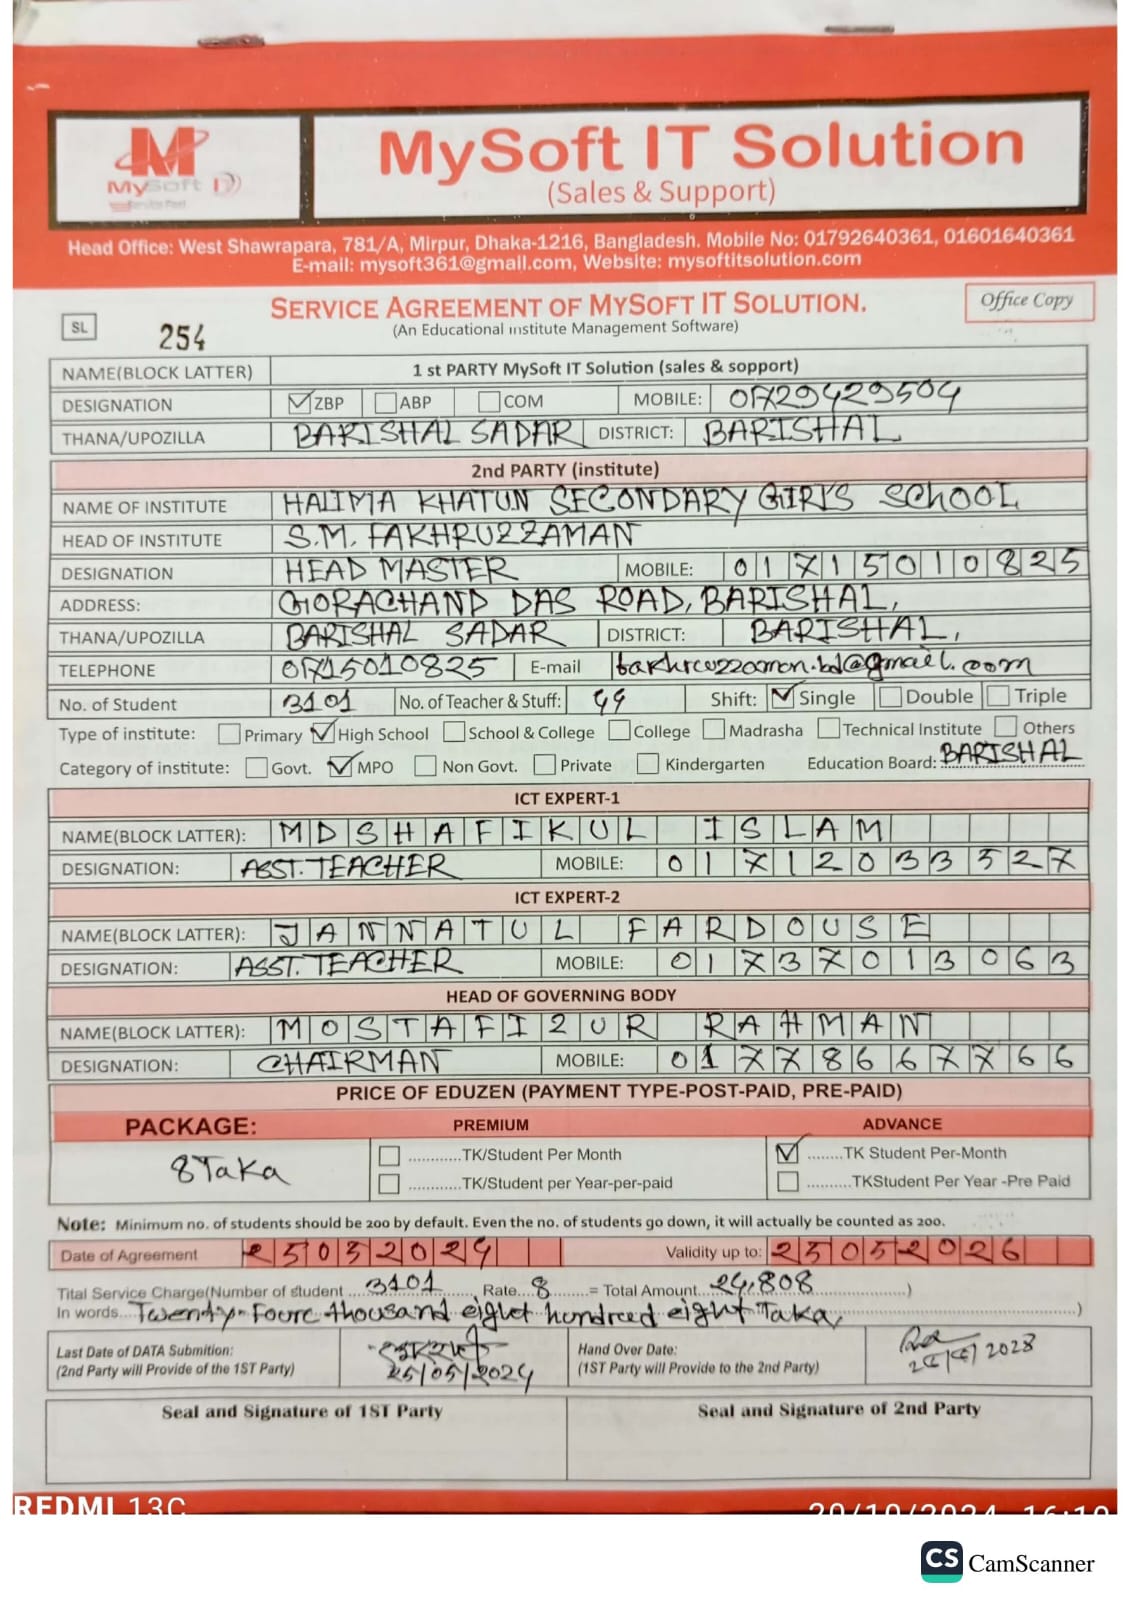 MySoft IT
MySoft IT Solution
(Sales & Support)
Head Office: West Shawrapara, 781/A, Mirpur, Dhaka-1216, Bangladesh. Mobile No: 01792640361, 01601640361
E-mail: mysoft361@gmail.com, Website: mysoftitsolution.com
SERVICE AGREEMENT OF MYSOFT IT SOLUTION.
Office Copy
SL 254
(An Educational institute Management Software)
NAME(BLOCK LATTER) 1 st PARTY MySoft IT Solution (sales & sopport)
DESIGNATION ZBP ABP COM MOBILE: 01729429504
THANA/UPOZILLA BARISHAL SADAR DISTRICT: BARISHAL
2nd PARTY (institute)
NAME OF INSTITUTE HALIMA KHATUN SECONDARY GIRLS SCHOOL
HEAD OF INSTITUTE S.M. FAKHRUZZAMAN
DESIGNATION HEAD MASTER MOBILE: 01715010825
ADDRESS: GORACHAND DAS ROAD, BARISHAL,
THANA/UPOZILLA BARISHAL SADAR DISTRICT: BARISHAL,
TELEPHONE 01715010825 E-mail
No. of Student 3101 No. of Teacher & Stuff: 44 Shift: Single Double Triple
Type of institute: Primary High School School & College College Madrasha Technical Institute Others
Category of institute: Govt. MPO Non Govt. Private Kindergarten Education Board: BARISHAL
ICT EXPERT-1
NAME(BLOCK LATTER): MD SHAFIKUL ISLAM
DESIGNATION: ASST. TEACHER MOBILE: 01712033527
ICT EXPERT-2
NAME(BLOCK LATTER): JANNATUL FARDOUSE
DESIGNATION: ASST. TEACHER MOBILE: 01737013063
HEAD OF GOVERNING BODY
NAME(BLOCK LATTER): MOSTAFIZUR RAHMAN
DESIGNATION: CHAIRMAN MOBILE: 01778667766
PRICE OF EDUZEN (PAYMENT TYPE-POST-PAID, PRE-PAID)
PACKAGE: PREMIUM ADVANCE
8 Taka ............TK/Student Per Month ........TK Student Per-Month
............TK/Student per Year-per-paid ..........TKStudent Per Year -Pre Paid
Note: Minimum no. of students should be 200 by default. Even the no. of students go down, it will actually be counted as 200.
Date of Agreement 25052024 Validity up to: 25052026
Tital Service Charge(Number of student ....3101........ Rate...8....... = Total Amount...24,808....................)
In words...Twenty-Four thousand eight hundred eight Taka,...)
Last Date of DATA Submition:
(2nd Party will Provide of the 1ST Party) 25/05/2024
Hand Over Date:
(1ST Party will Provide to the 2nd Party)
Seal and Signature of 1ST Party Seal and Signature of 2nd Party
REDMI 13C 20/10/2024 16:10
CS CamScanner